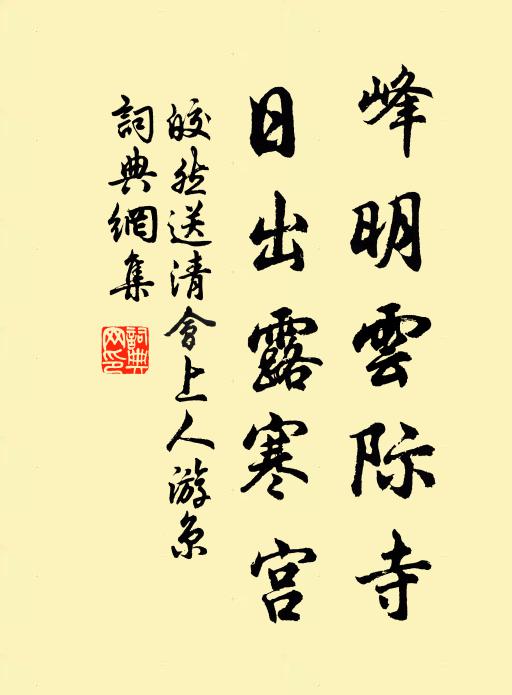 峰明雲际寺
日出露寒宫
皎然送清會上人游京
詞典網集
詞典网印